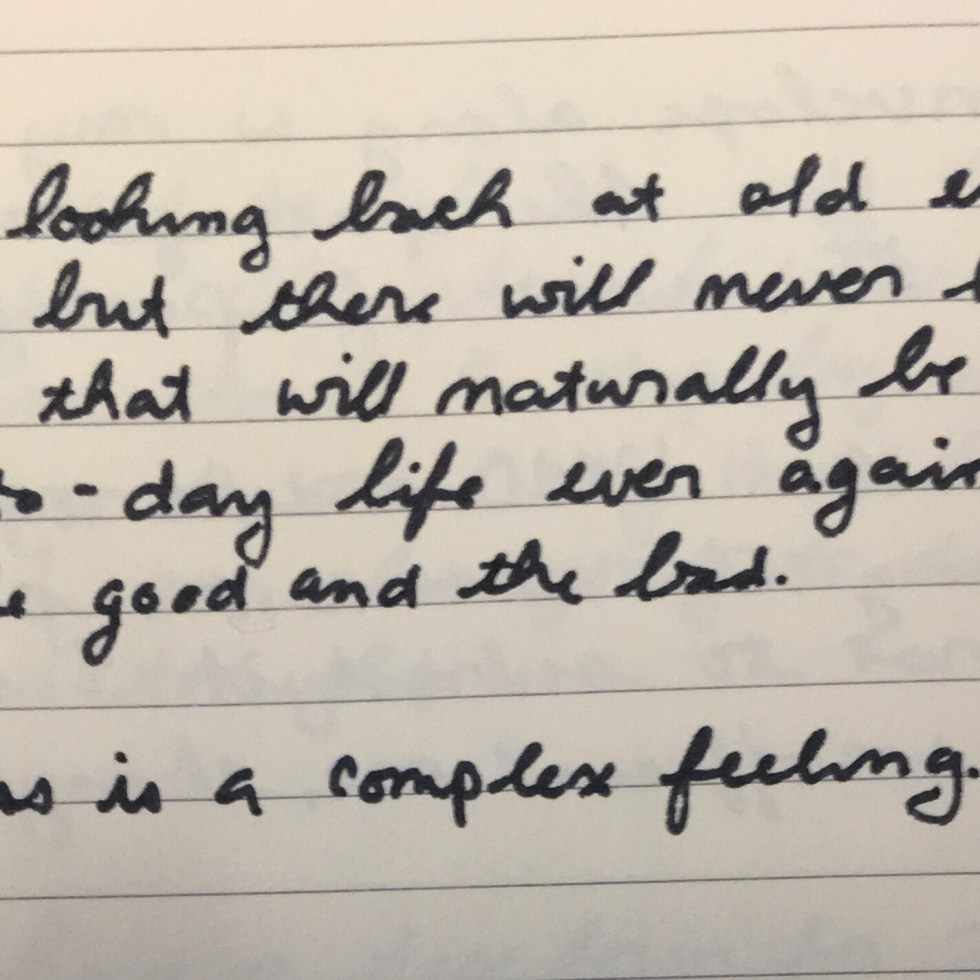 looking back at old e
but there will never
that will naturally be
to-day life ever again
good and the bad.
is a complex feeling.